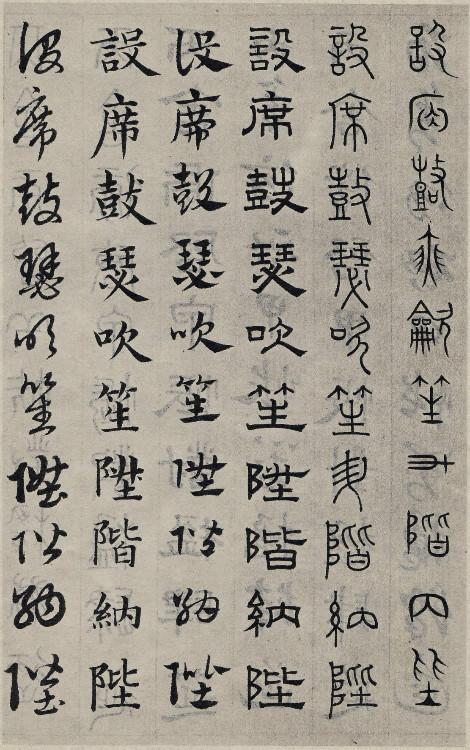 設席鼓瑟龡笙升階内坒
設席鼓瑟吹笙升階納陛
設席鼓瑟吹笙陞階納陛
設席鼓瑟吹笙陞階納陛
設席鼓瑟吹笙陞階納陛
設席鼓瑟吹笙陞階納陛